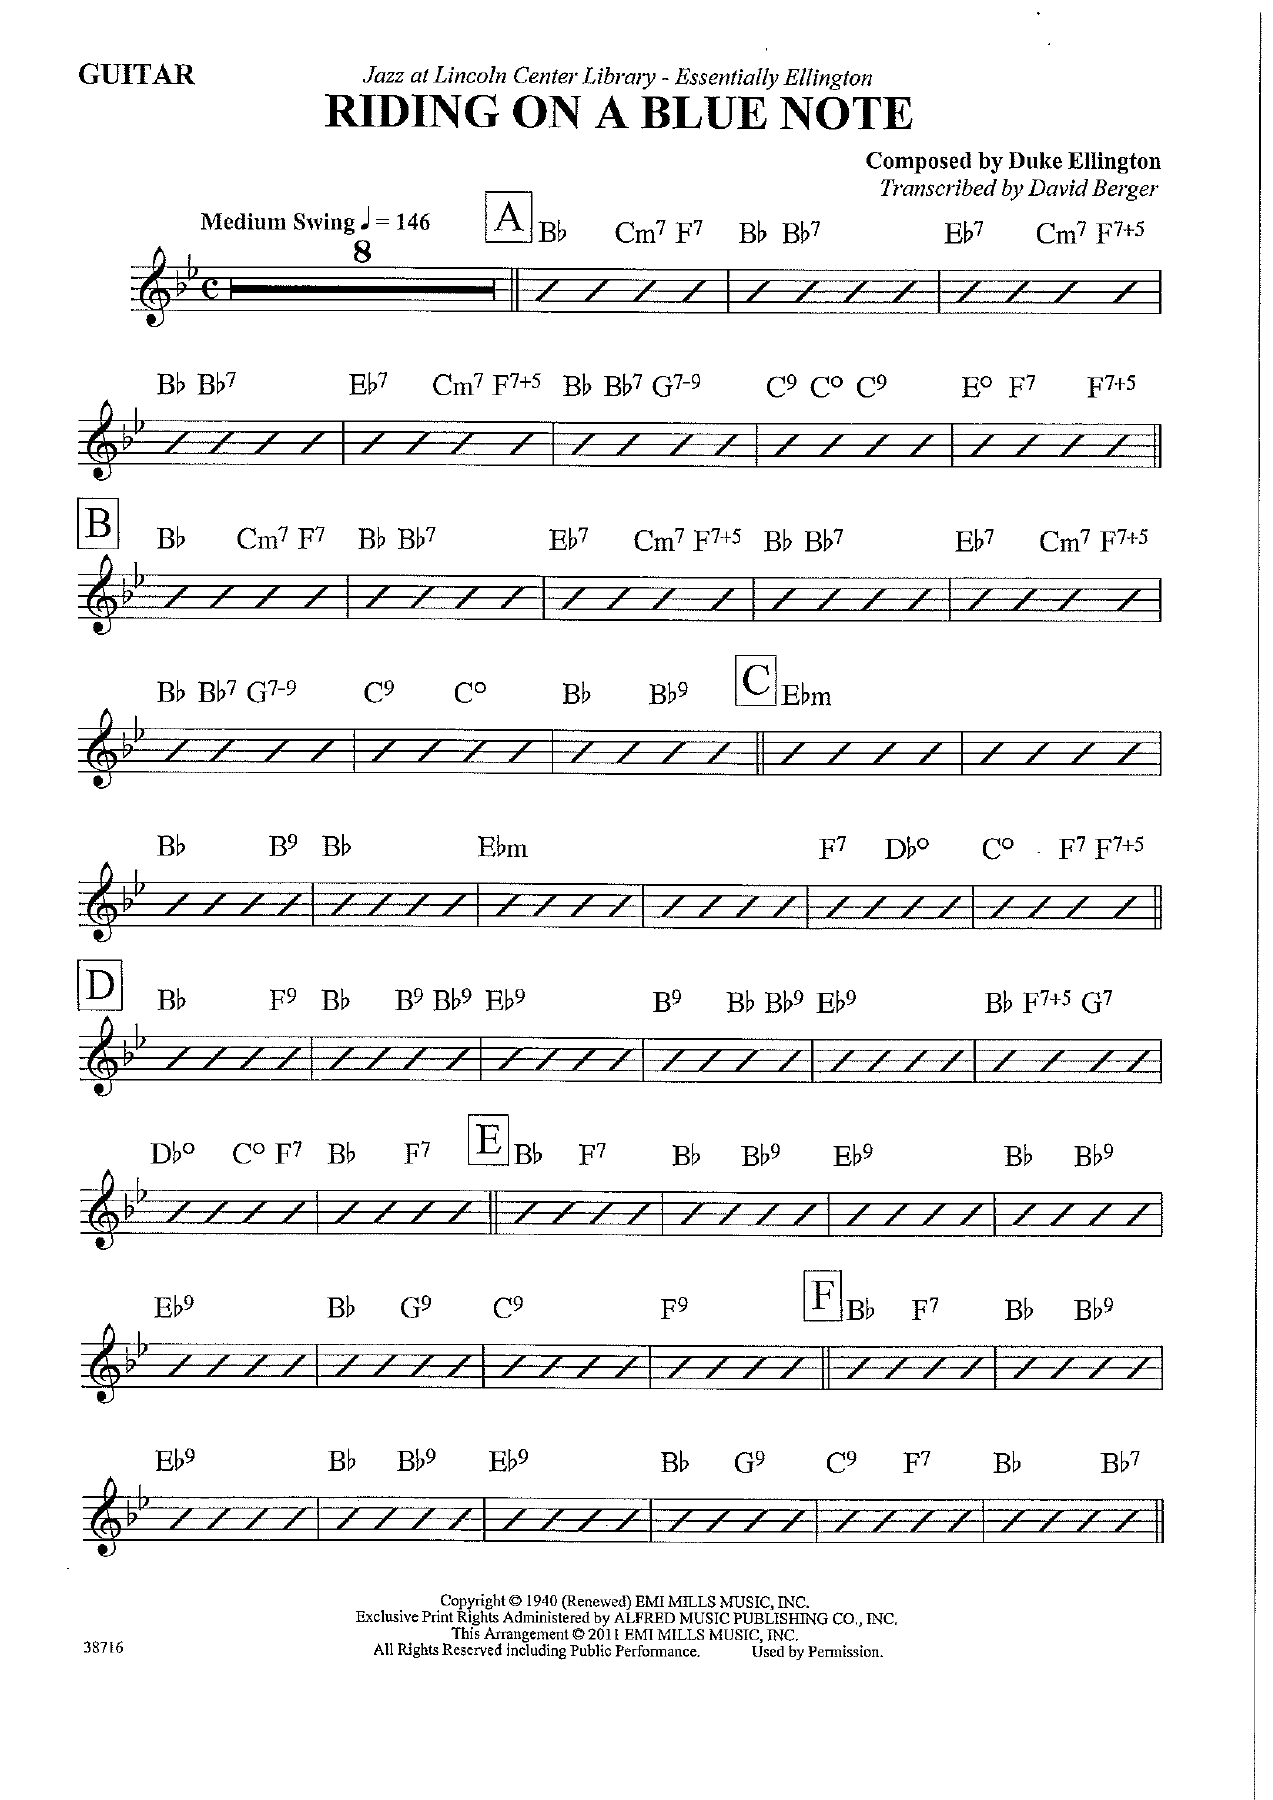 GUITAR
Jazz at Lincoln Center Library - Essentially Ellington
RIDING ON A BLUE NOTE
Composed by Duke Ellington
Transcribed by David Berger
Medium Swing ♩ = 146
8
A B♭ Cm7 F7 B♭ B♭7 E♭7 Cm7 F7+5
B♭ B♭7 E♭7 Cm7 F7+5 B♭ B♭7 G7-9 C9 C° C9 E° F7 F7+5
B B♭ Cm7 F7 B♭ B♭7 E♭7 Cm7 F7+5 B♭ B♭7 E♭7 Cm7 F7+5
B♭ B♭7 G7-9 C9 C° B♭ B♭9 C E♭m
B♭ B9 B♭ E♭m F7 D♭° C° F7 F7+5
D B♭ F9 B♭ B9 B♭9 E♭9 B9 B♭ B♭9 E♭9 B♭ F7+5 G7
D♭° C° F7 B♭ F7 E B♭ F7 B♭ B♭9 E♭9 B♭ B♭9
E♭9 B♭ G9 C9 F9 F B♭ F7 B♭ B♭9
E♭9 B♭ B♭9 E♭9 B♭ G9 C9 F7 B♭ B♭7
Copyright © 1940 (Renewed) EMI MILLS MUSIC, INC.
Exclusive Print Rights Administered by ALFRED MUSIC PUBLISHING CO., INC.
This Arrangement © 2011 EMI MILLS MUSIC, INC.
38716 All Rights Reserved including Public Performance. Used by Permission.